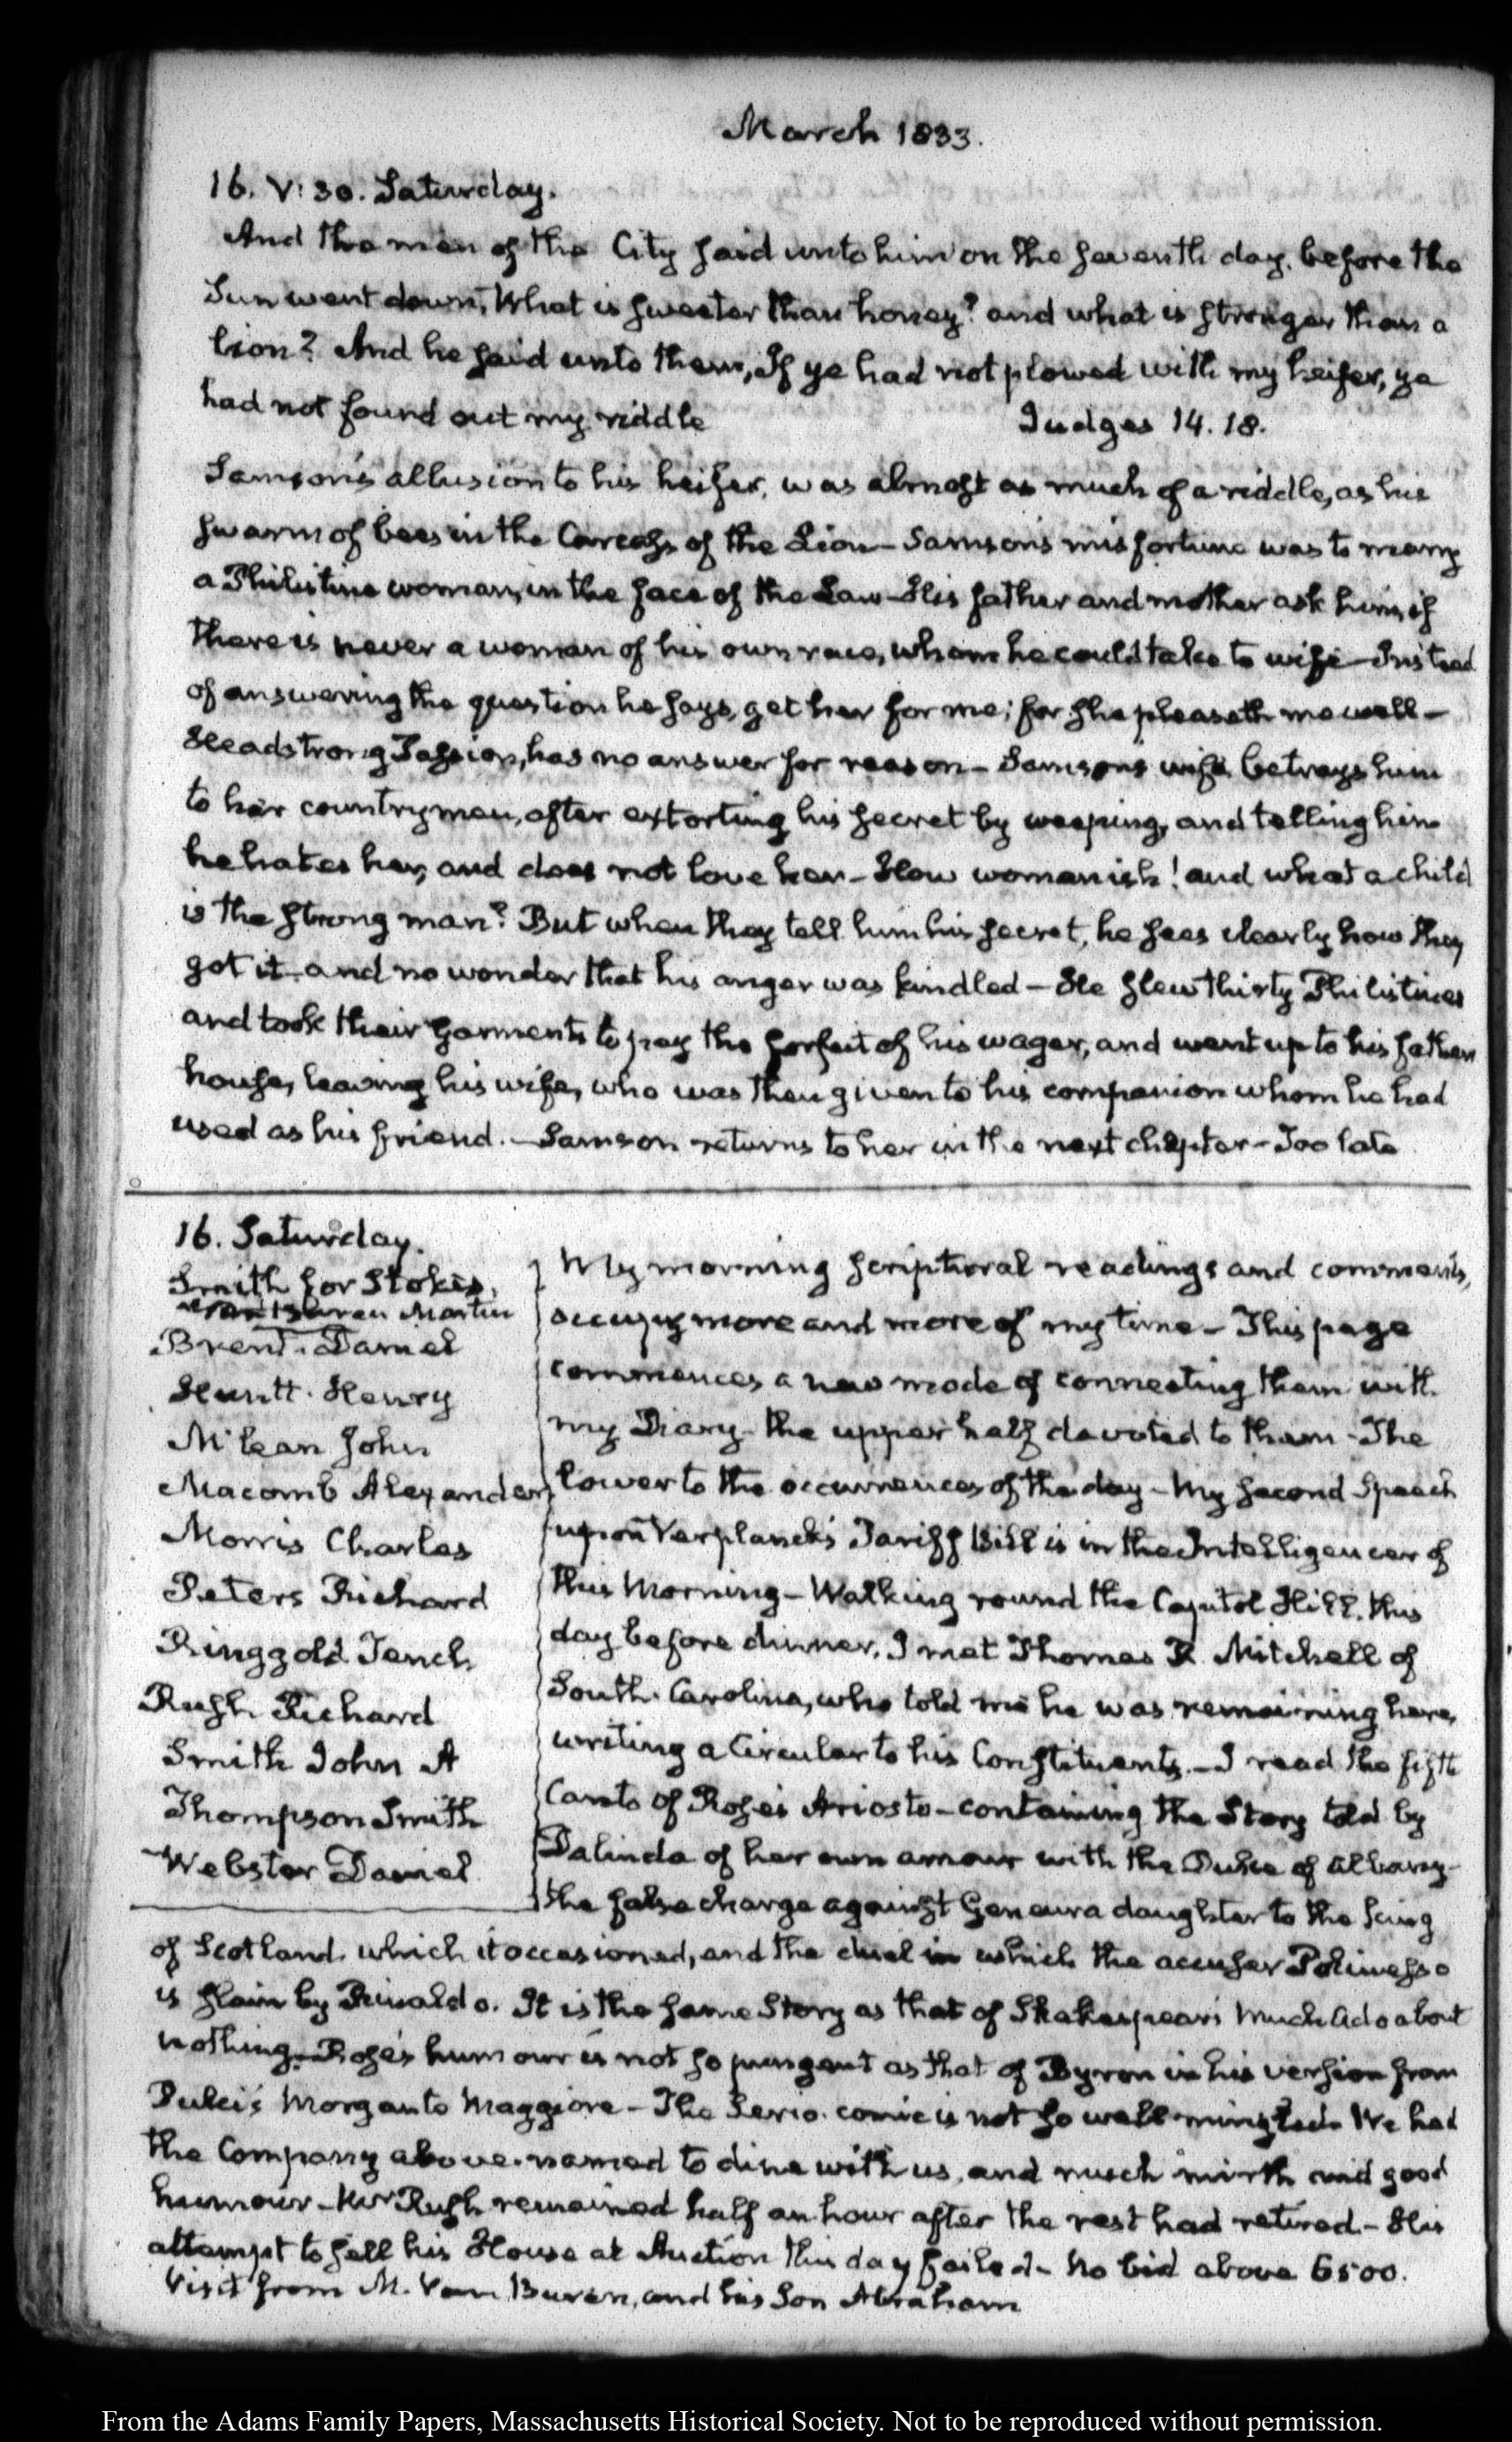 March 1833.
16. V: 30. Saturday.
And the men of the City said unto him on the seventh day, before the
Sun went down, What is sweeter than honey? and what is stronger than a
lion? And he said unto them, If ye had not plowed with my heifer, ye
had not found out my riddle Judges 14. 18.
Samson's allusion to his heifer, was almost as much of a riddle, as his
swarm of bees in the Carcass of the Lion — Samson's misfortune was to marry
a Philistine woman, in the face of the Law — His father and mother ask him, if
there is never a woman of his own race, whom he could take to wife — Instead
of answering the question he says, get her for me; for she pleaseth me well —
Headstrong Passion, has no answer for reason — Samsons wife betrays him
to her countrymen, after extorting his secret by weeping, and telling him
he hates her, and does not love her — How womanish! and what a child
is the strong man? But when they tell him his secret, he sees clearly how they
got it and no wonder that his anger was kindled — He slew thirty Philistines
and took their Garments to pay the forfeit of his wager, and went up to his fathers
house, leaving his wife, who was then given to his companion whom he had
used as his friend. — Samson returns to her in the next chapter — Too late
16. Saturday.
Smith for Stokes.
Van Buren Martin
Brent. Daniel
Huntt. Henry
McLean John
Macomb Alexander
Morris Charles
Peters Richard
Ringgold Tench
Rush Richard
Smith John A
Thompson Smith
Webster Daniel
My morning scriptural readings and comments,
occupy more and more of my time — This page
commences a new mode of connecting them with
my Diary — the upper half devoted to them — The
lower to the occurrences of the day — My second Speech
upon Verplanck's Tariff Bill is in the Intelligencer of
this Morning — Walking round the Capitol Hill, this
day before dinner, I met Thomas R. Mitchell of
South Carolina, who told me he was remaining here,
writing a Circular to his Constituents. — I read the fifth
Canto of Rose's Ariosto — containing the Story told by
Dalinda of her own amour with the Duke of Albany —
the false charge against Geneura daughter to the king
of Scotland which it occasioned, and the duel in which the accuser Polinesso
is slain by Rinaldo. It is the same Story as that of Shakespear's Much Ado about
nothing. Rose's humour is not so pungent as that of Byron in his version from
Pulci's Morgante Maggiore — The Serio-comic is not so well mingled. We had
the Company above-named to dine with us, and much mirth and good
humour — Mr Rush remained half an hour after the rest had retired — His
attempt to sell his House at Auction this day failed — No bid above 6500.
Visit from M. Van Buren, and his Son Abraham
From the Adams Family Papers, Massachusetts Historical Society. Not to be reproduced without permission.